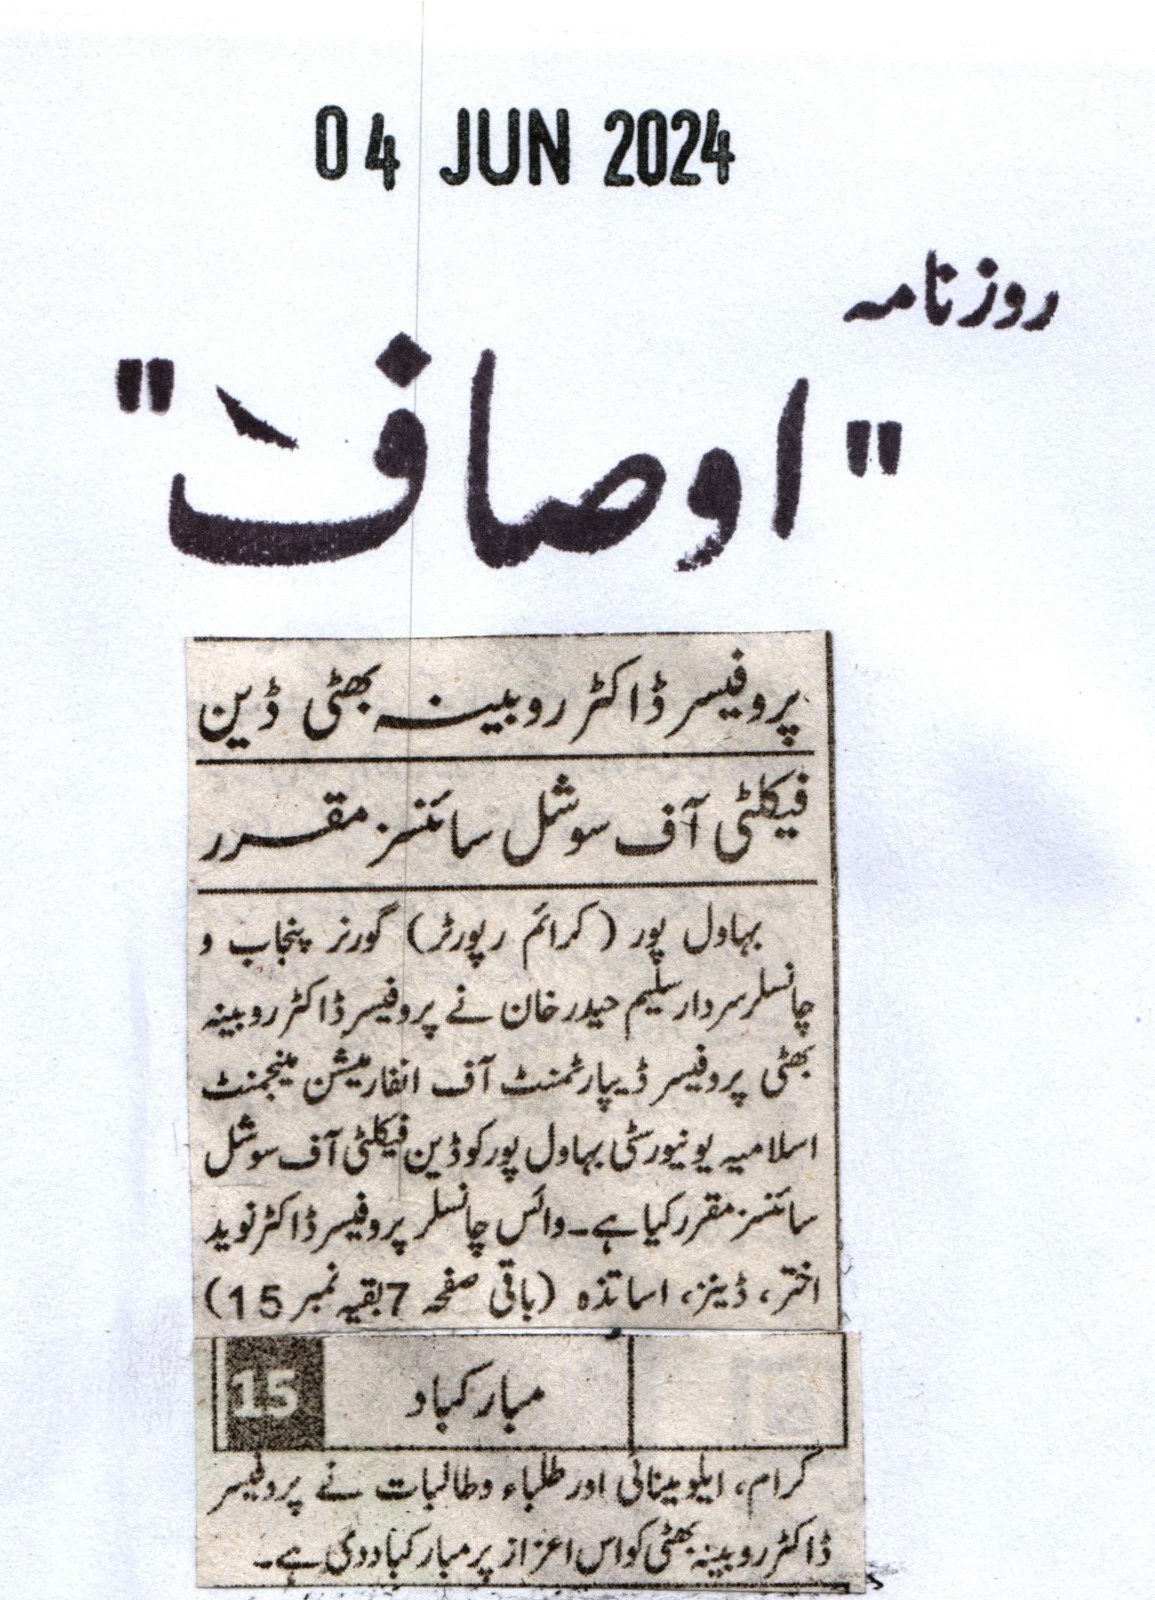 04 JUN 2024
روزنامہ
"اوصاف"
پروفیسر ڈاکٹر روبینہ بھٹی ڈین
فیکلٹی آف سوشل سائنسز مقرر
بہاول پور (کرائم رپورٹر) گورنر پنجاب و
چانسلر سردار سلیم حیدر خان نے پروفیسر ڈاکٹر روبینہ
بھٹی پروفیسر ڈیپارٹمنٹ آف انفارمیشن مینجمنٹ
اسلامیہ یونیورسٹی بہاول پور کو ڈین فیکلٹی آف سوشل
سائنسز مقرر کیا ہے۔ وائس چانسلر پروفیسر ڈاکٹر نوید
اختر، ڈینز، اساتذہ (باقی صفحہ 7 بقیہ نمبر 15)
مبارکباد 15
کرام، ایلومینائی اور طلباء وطالبات نے پروفیسر
ڈاکٹر روبینہ بھٹی کو اس اعزاز پر مبارکباد دی ہے۔